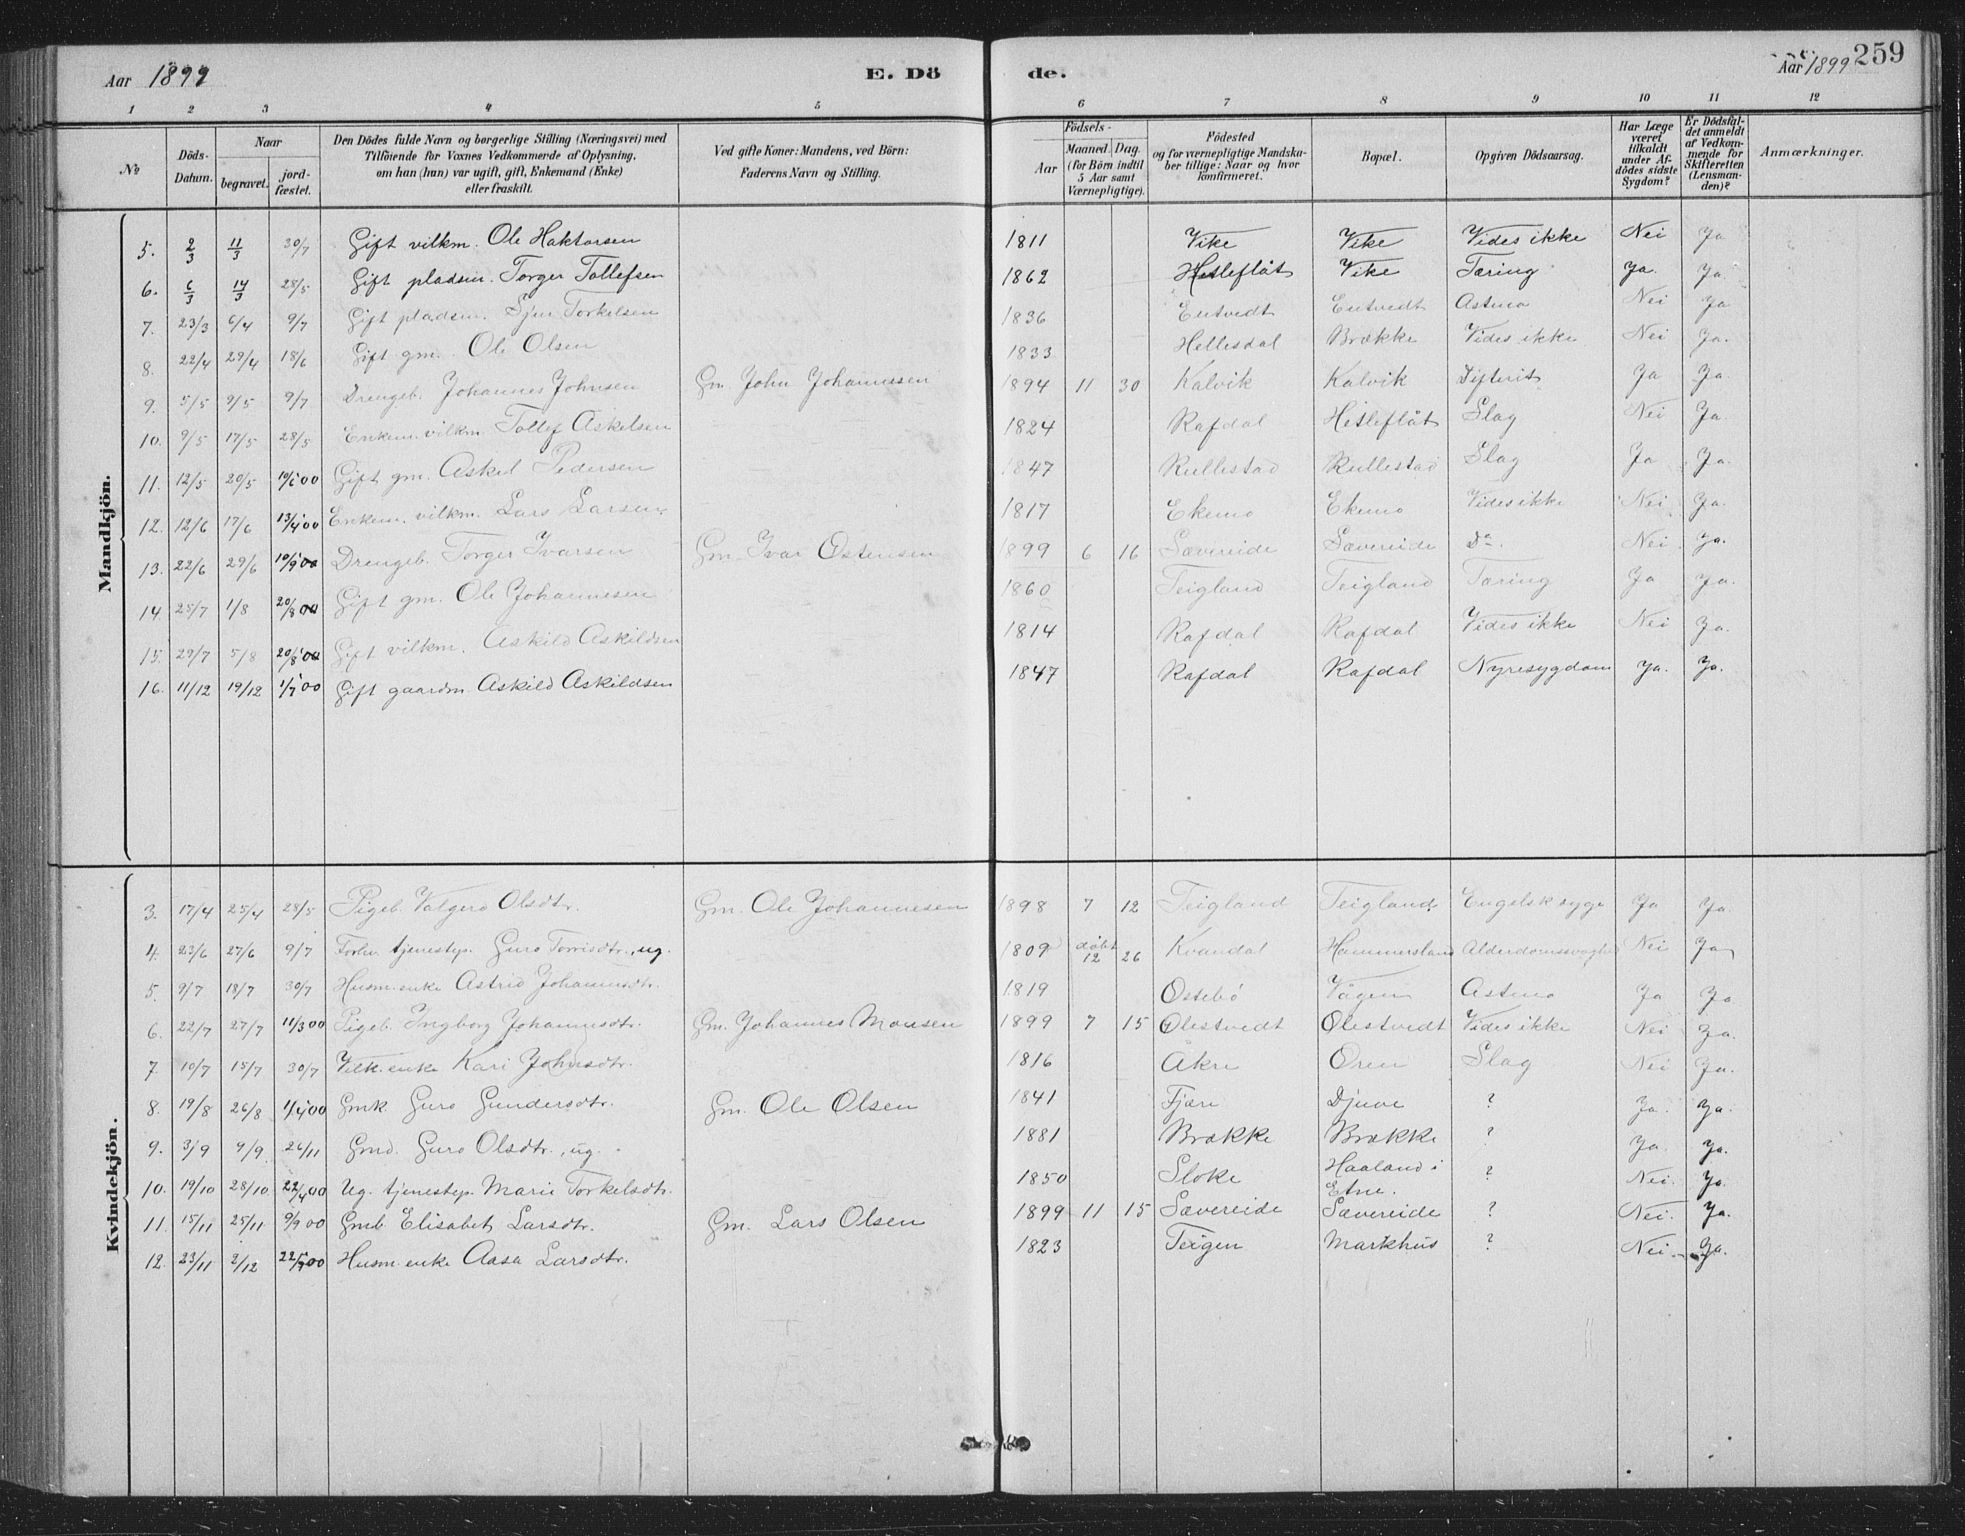 Aar 1899 E. Dö de. Aar 1899 259
1 2 3 4 5 6 7 8 9 10 11 12
No Döds-Datum. Naar begravet. jord-fæstet. Den Dödes fulde Navn og borgerlige Stilling (Næringsvei) med Tilföiende for Voxnes Vedkommende af Oplysning, om han (hun) var ugift, gift, Enkemand (Enke) eller fraskilt. Ved gifte Koner: Mandens, ved Börn: Faderens Navn og Stilling. Födsels- Aar Maaned. Dag. (for Börn indtil 5 Aar samt Værnepligtige). Födested og for værnepligtige Mandskaber tillige: Naar og hvor konfirmeret. Bopæl. Opgiven Dödsaarsag. Har Læge været tilkaldt under Afdödes sidste Sygdom? Er Dödsfaldet anmeldt af Vedkommende for Skifteretten (Lensmanden)? Anmærkninger.
Mandkjön.
5. 2/3 11/3 30/7 Gift vilkm. Ole Haktorsen 1811 Vike Vike Vides ikke Nei Ja
6. 6/3 14/3 28/5 Gift pladsm. Torger Tollefsen 1862 Hetleflåt Vike Tæring Ja. Ja.
7. 23/3 6/4 9/7 Gift pladsm. Sjur Torkelsen 1836 Entvedt Entvedt Astma Nei Ja
8. 22/4 29/4 18/6 Gift gm. Ole Olsen 1833 Hellesdal Brække Vides ikke Nei Ja.
9. 5/5 9/5 9/7 Drengeb. Johannes Johnsen Gm. John Johannessen 1894 11 30 Kalvik Kalvik Difterit Ja Ja.
10. 9/5 17/5 28/5 Enkem. vilkm. Tollef Askelsen 1824 Rafdal Hetleflåt Slag Nei Ja.
11. 12/5 20/5 10/6 00 Gift gm. Askel Pedersen 1847 Rullestad Rullestad Slag Ja Ja.
12. 12/6 17/6 13/4 00 Enkem. vilkm. Lars Larsen 1817 Ekemo Ekemo Vides ikke Nei Ja.
13. 22/6 29/6 10/9 00 Drengeb. Torger Ivarsen Gm. Ivar Ostensen 1899 6 16 Sævereide Sævereide Do. Nei. Ja.
14. 25/7 1/8 20/8 00 Gift gm. Ole Johannesen 1860 Teigland Teigland Tæring Ja Ja.
15. 29/7 5/8 20/8 00 Gift vilkm. Askild Askildsen 1814 Rafdal Rafdal Vides ikke Nei Ja.
16. 11/12 19/12 1/7 00 Gift gaardm Askild Askildsen 1847 Rafdal Rafdal Nyresygdom Ja. Ja.
Kvindekjön.
3. 17/4 25/4 28/5 Pigeb. Valgerd Olsdtr. Gm. Ole Johannesen 1898 7 12 Teigland Teigland. Engelsk syge Ja Ja.
4. 23/6 27/6 9/7 Forhv. tjenestep. Guro Torrisdtr., ug. 1809 døbt 12 26 Kvandal Hammersland Alderdomssvaghed Nei Ja
5. 9/7 18/7 30/7 Husm. enke Astrid Johannsdtr. 1819 Ostebö Vågen Astma Ja Ja
6. 22/7 27/7 11/3 00 Pigeb. Ingborg Johannsdtr. Gm. Johannes Monsen 1899 7 15 Ølestvedt Ølestvedt Vides ikke Nei Ja.
7. 10/7 15/7 30/7 Vilk. enke Kari Johnsdtr. 1816 Åkre Øren Slag Nei Ja.
8. 19/8 26/8 1/4 00 Gmk. Guro Gundersdtr. Gm. Ole Olsen 1841 Fjæri Djuve ? Ja. Ja.
9. 3/9 9/9 26/11 Gmd. Guro Olsdtr., ug. 1881 Brække Brække ? Ja. Ja.
10. 19/10 28/10 22/4 00 Ug. tjenestep. Mari Torkelsdtr. 1850 Sloke Haaland i Etne. ? Nei. Ja.
11. 15/11 25/11 9/9 00 Gmb Elisabet Larsdtr. Gm. Lars Olsen 1899 11 15 Sævereide Sævereide ? Nei. Ja.
12. 23/11 2/12 00 Husm. enke Aasa Larsdtr. 1823 Teigen Markhus ? Nei Ja.